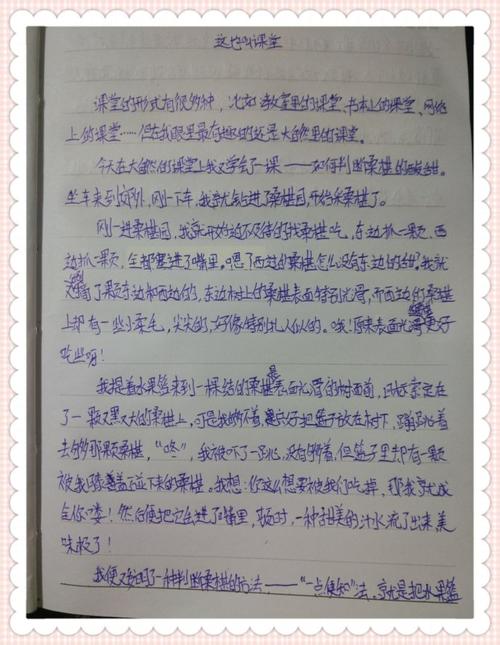 这也叫课堂
课堂的形式有很多种，比如教室里的课堂、书本上的课堂、网络
上的课堂……但在我眼里最有趣的还是大自然里的课堂。
今天在大自然的课堂上我又学会了一课——如何判断桑椹的酸甜。
坐车来到郊外，刚一下车，我就钻进了桑椹园开始采桑椹了。
刚一进桑椹园，我就开始迫不及待的找桑椹吃，东边抓一颗，西
边抓一颗，全都塞进了嘴里。嗯？西边的桑椹怎么没有东边的甜。我就
又摘了几颗东边和西边的，东边树上的桑椹表面特别光滑，而西边的桑椹
上却有一些小柔毛，尖尖的，好像特别扎人似的。哦！原来表面光滑更好
吃些呀！
我提着水果篮来到一棵结的桑椹是表面光滑的树面前，目标索定在
了一颗又黑又大的桑椹上，可是我够不着，只好把篮子放在树下，踮起脚着
去够那颗桑椹，“咚”，我被吓了一跳，没有够着，但篮子里却有一颗
被我震下来的桑椹，我想：你这么想要被我们吃掉，那我就成
全你喽！然后便把它丢进了嘴里，顿时，一种甜美的汁水流了出来美
味极了！
我便又发明了一种判断桑椹的方法——“一点便知”法，就是把水果篮